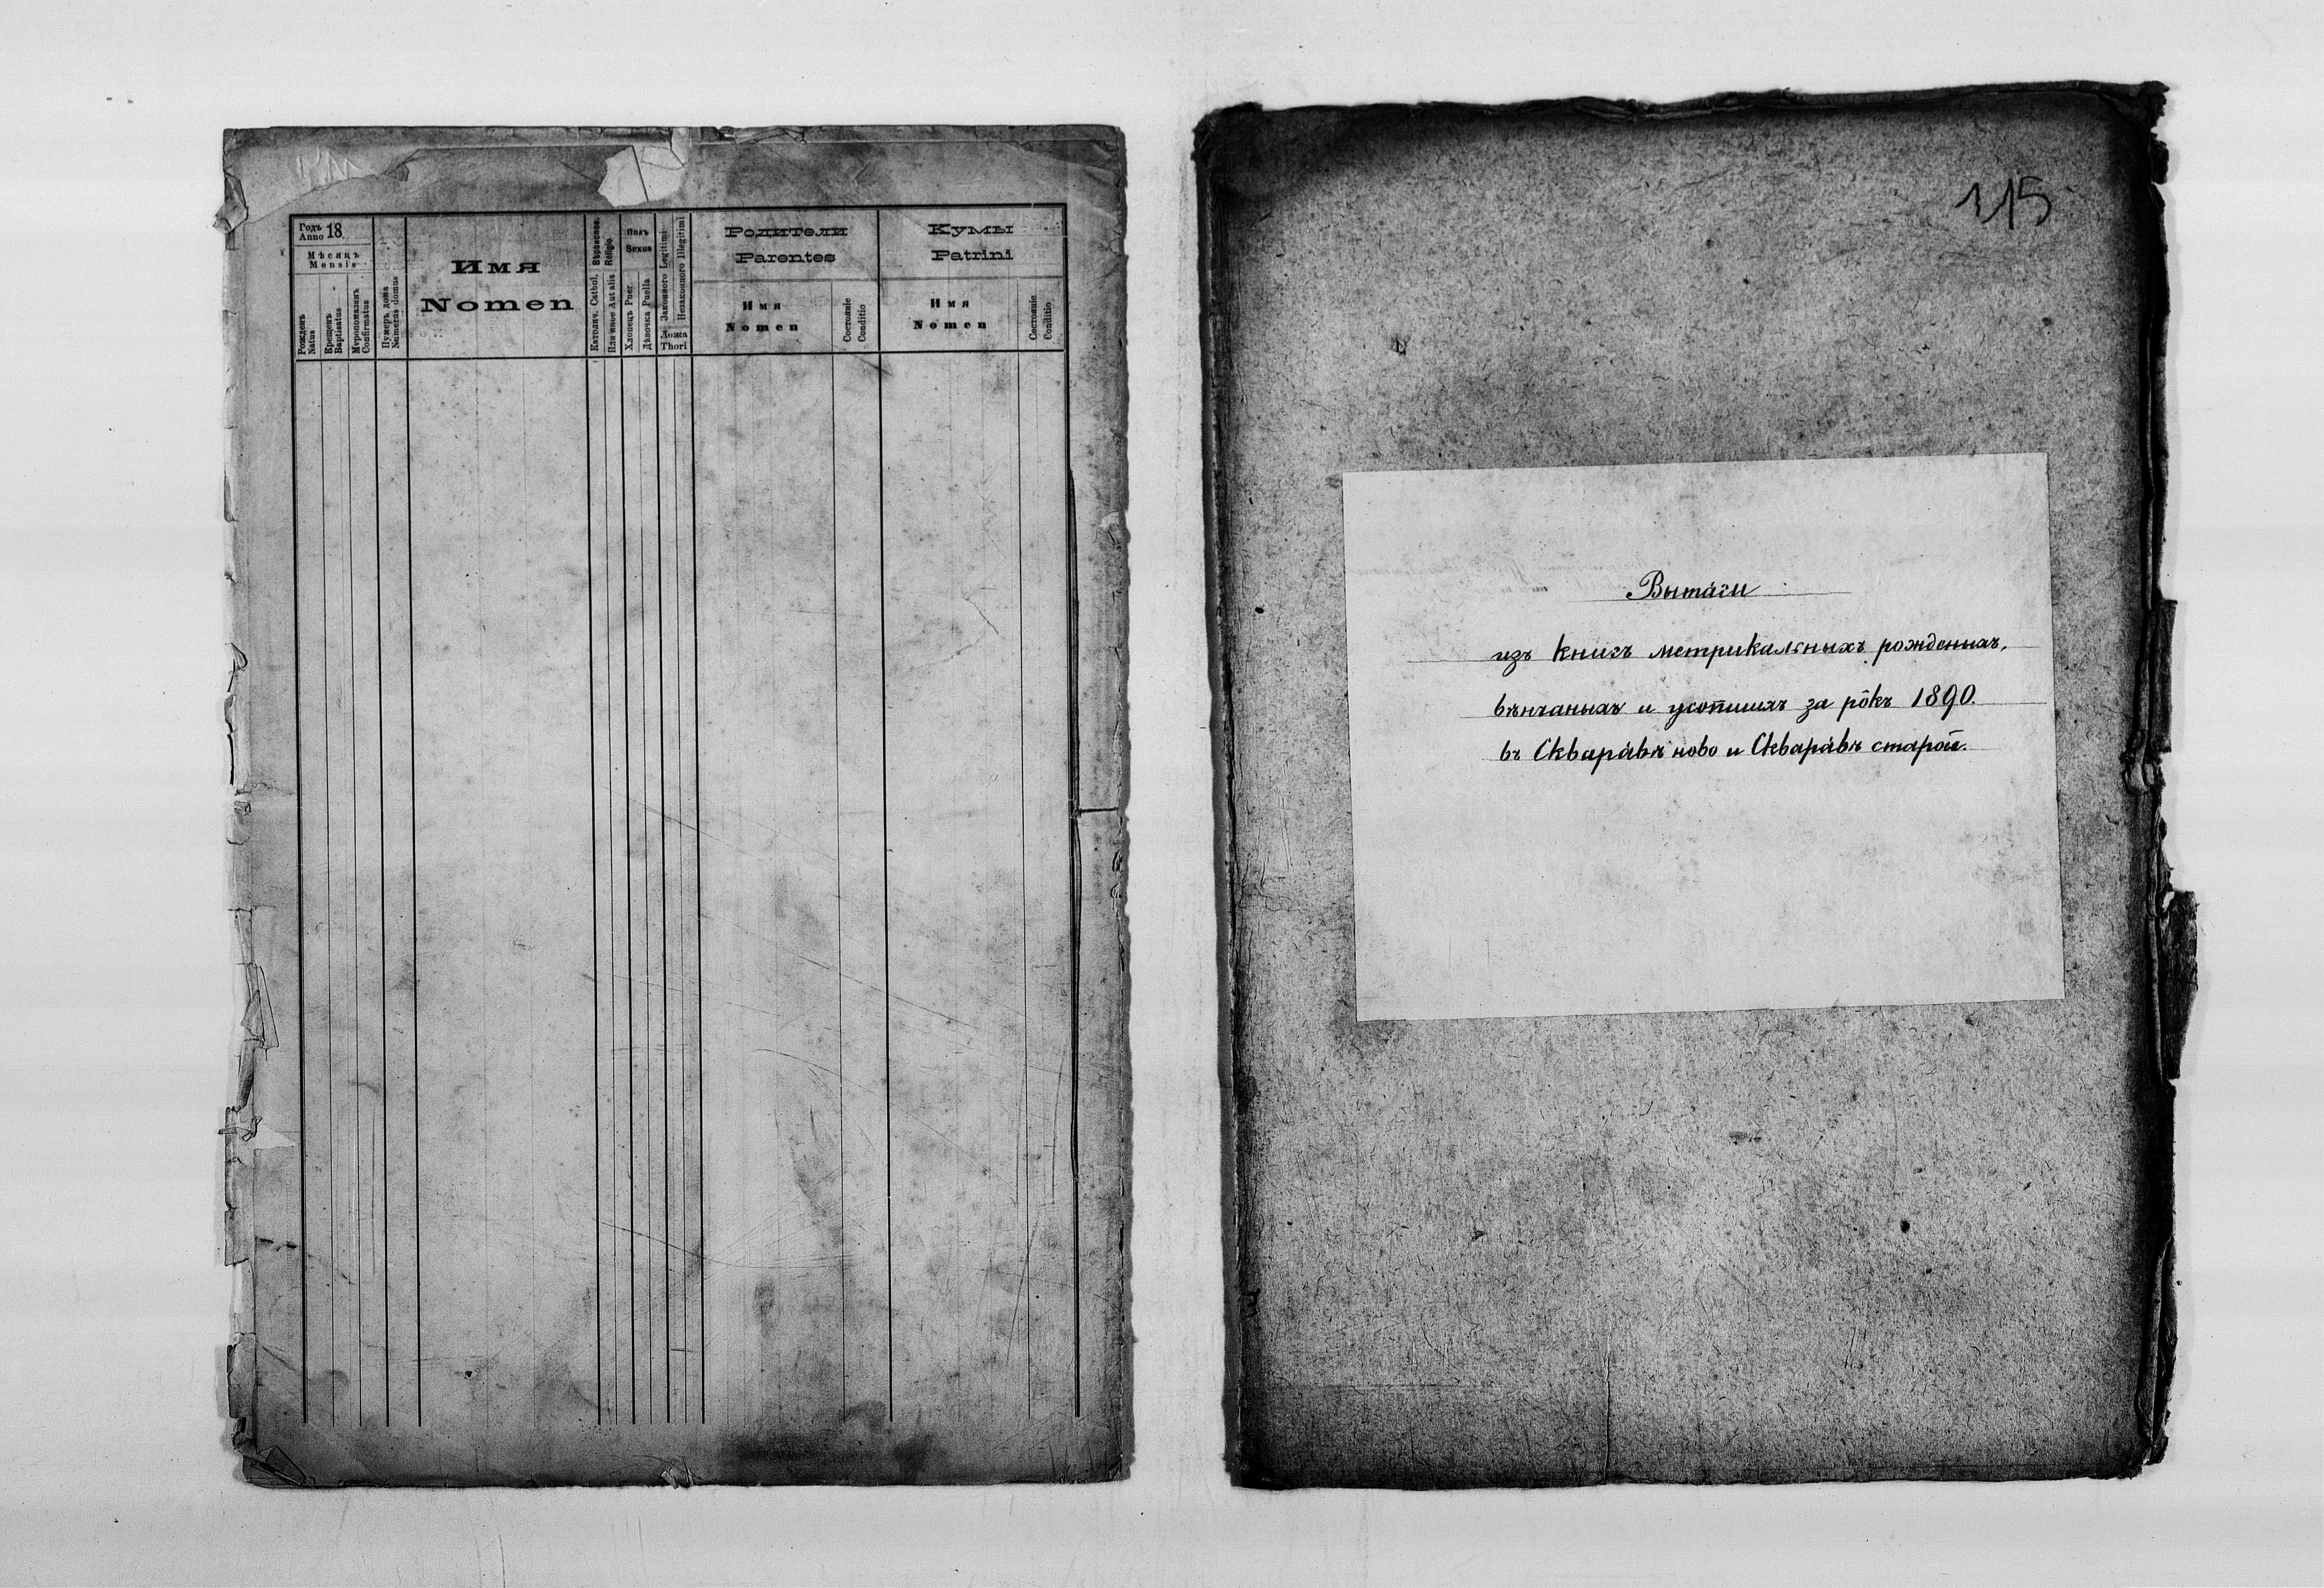 Годъ
Anno 18
Мѣсяцъ
Mensis
Рожденъ
Natus
Крещенъ
Baptisatus
Мѵропомазанъ
Confirmatus
Нумеръ дома
Numerus domus
Имя
Nomen
Religio
Католич. Cathol.
Полъ
Sexus
Хлопецъ Puer
Дѣвочка Puella
Законного Legitimi
Незаконного Illegitimi
Ложа
Thori
Родители
Parentes
Имя
Nomen
Состояніе
Conditio
Кумы
Patrini
Имя
Nomen
Состояніе
Conditio
115
Вытяги
изъ книгъ метрикальныхъ рожденыхъ,
вѣнчаныхъ и усопшихъ за рôкъ 1890.
въ Скварявѣ ново и Скварявѣ старой.